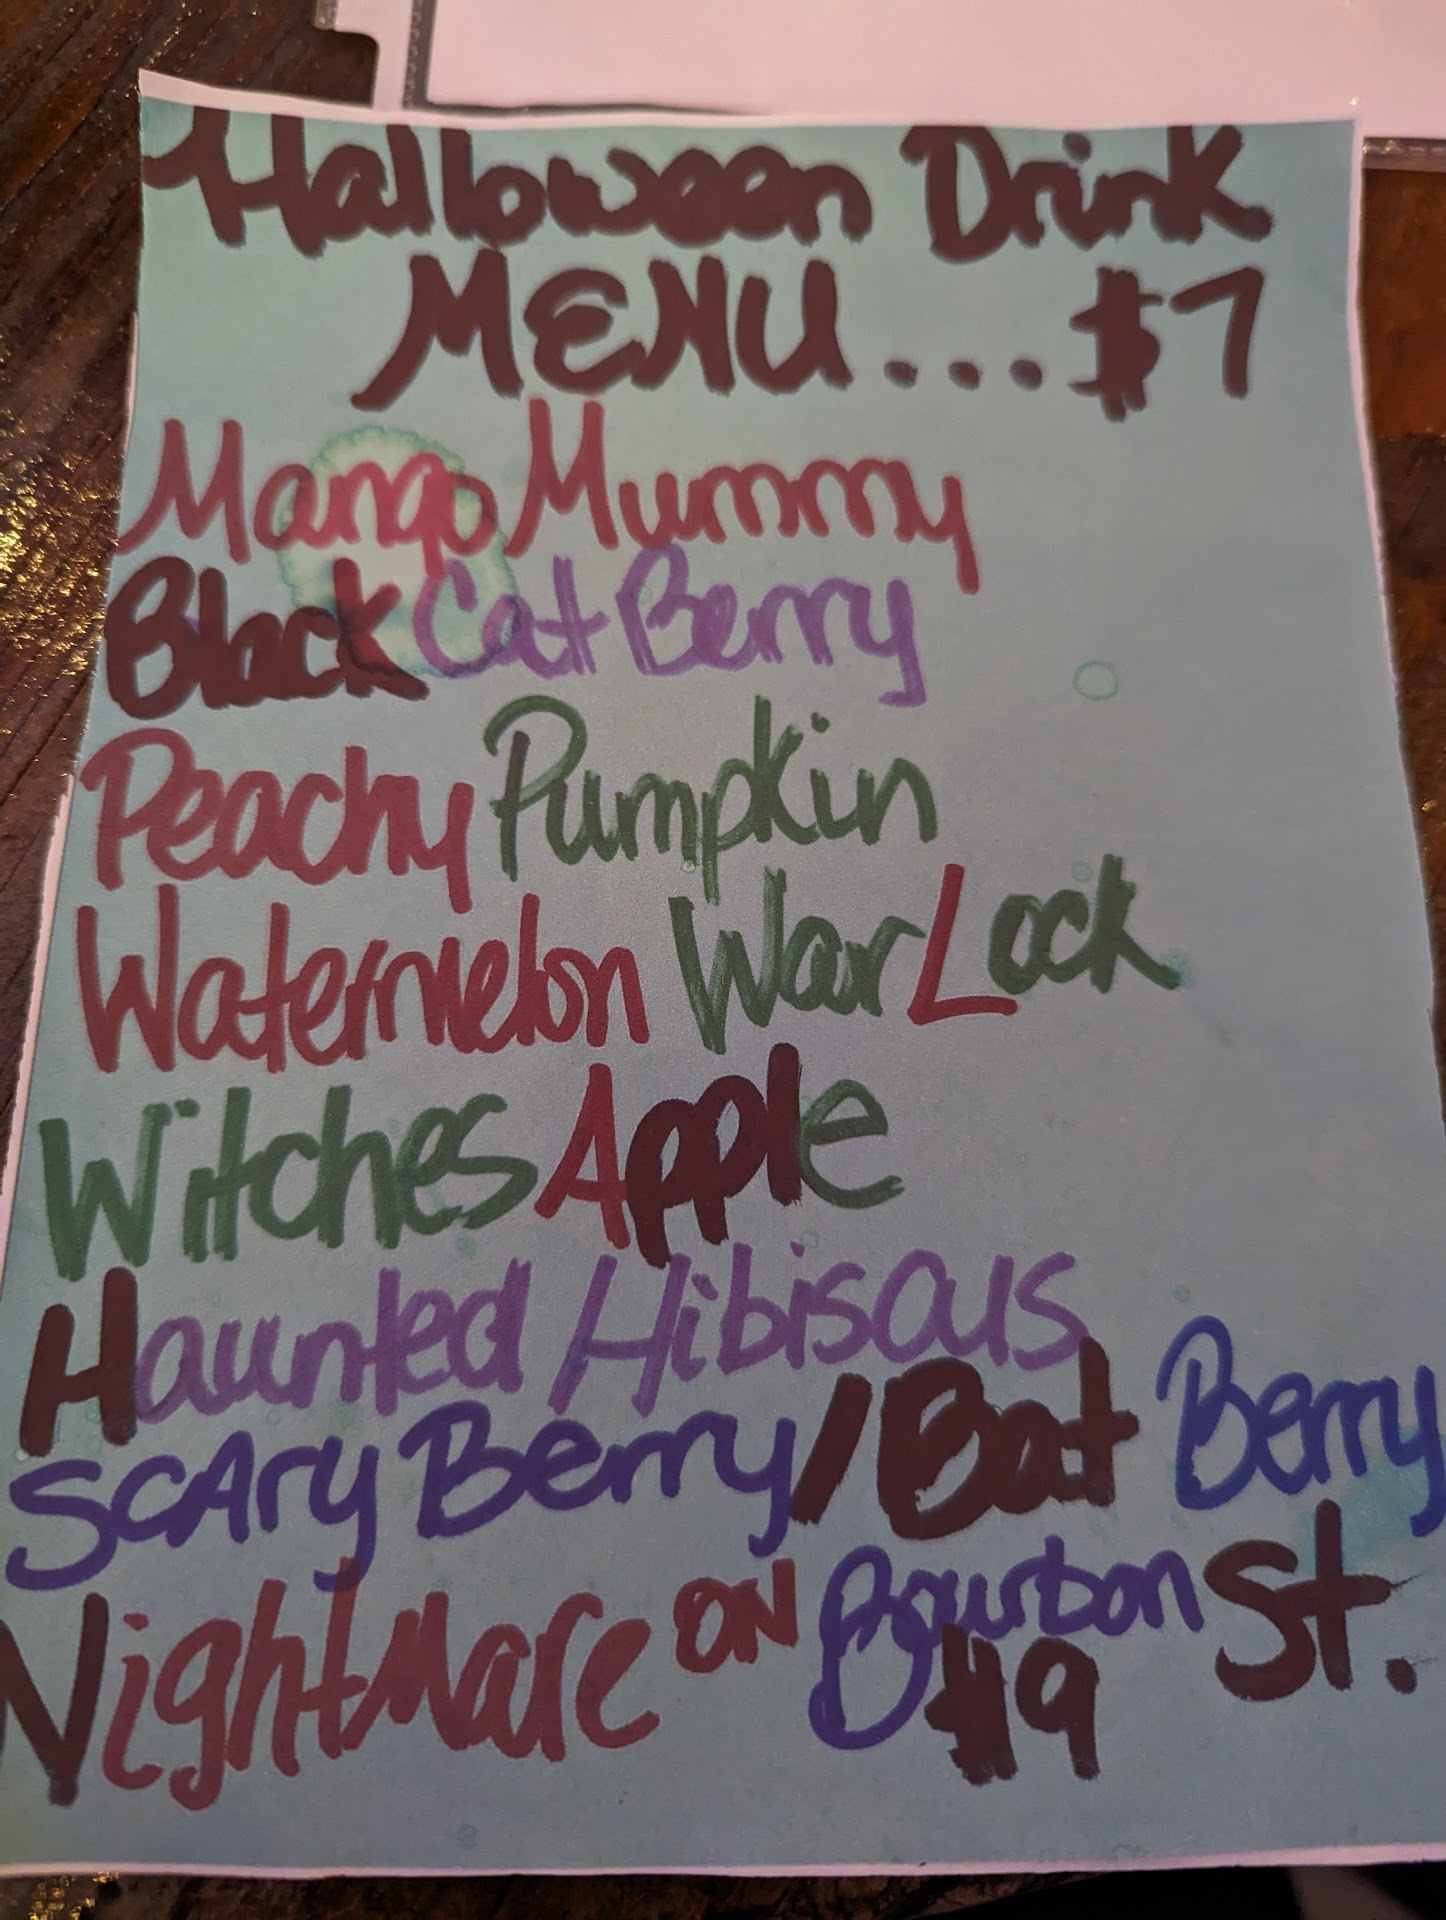 Halloween Drink
MENU...$7
Mango Mummy
Black Cat Berry
Peachy Pumpkin
Watermelon WarLock
Witches Apple
Haunted Hibiscus
ScAry Berry/Bat Berry
NightMare ON Bourbon St.
$9